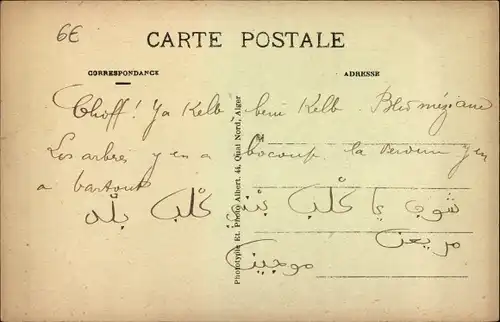 6€
CARTE POSTALE
CORRESPONDANCE
ADRESSE
Choff! Ya Kelb beni Kelb. Bled méziane
Los arbres y en a bocoup la verdure y en
a bartout
شوف يا كلب بن كلب بلد
مزيعن
موجين
Phototypie Et. Photo Albert, 44, Quai Nord, Alger